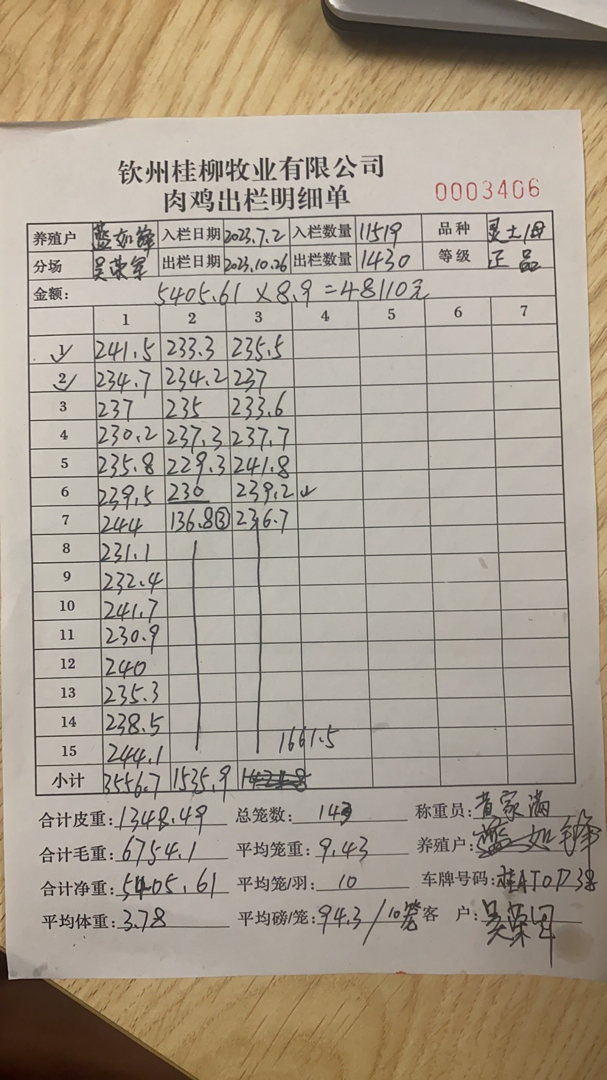 钦州桂柳牧业有限公司
肉鸡出栏明细单 0003406
养殖户 蓝如锋 入栏日期 2023.7.2 入栏数量 11519 品种 灵土1母
分场 吴荣军 出栏日期 2023.10.26 出栏数量 1430 等级 正品
金额: 5405.61×8.9=48110元
1 2 3 4 5 6 7
1 241.5 233.3 235.5
2 234.7 234.2 237
3 237 235 233.6
4 230.2 237.3 237.7
5 235.8 229.3 241.8
6 239.5 230 239.2
7 244 136.8③ 236.7
8 231.1
9 232.4
10 241.7
11 230.9
12 240
13 235.3
14 238.5
15 244.1 1661.5
小计 3556.7 1535.9
合计皮重: 1348.49 总笼数: 143 称重员: 黄家满
合计毛重: 6754.1 平均笼重: 9.43 养殖户: 蓝如锋
合计净重: 5405.61 平均笼/羽: 10 车牌号码: 桂AT0D38
平均体重: 3.78 平均磅/笼: 94.3/10笼 客户: